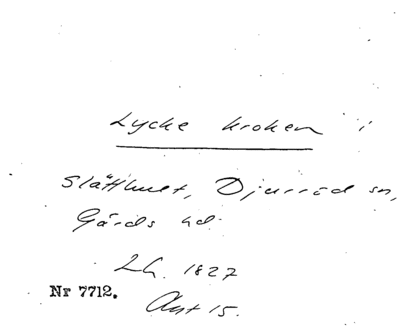 Lycke kroken i
Slätthult, Djurröd sn,
Gärds hd.
Lh. 1827
Nr 7712.
Akt 15.